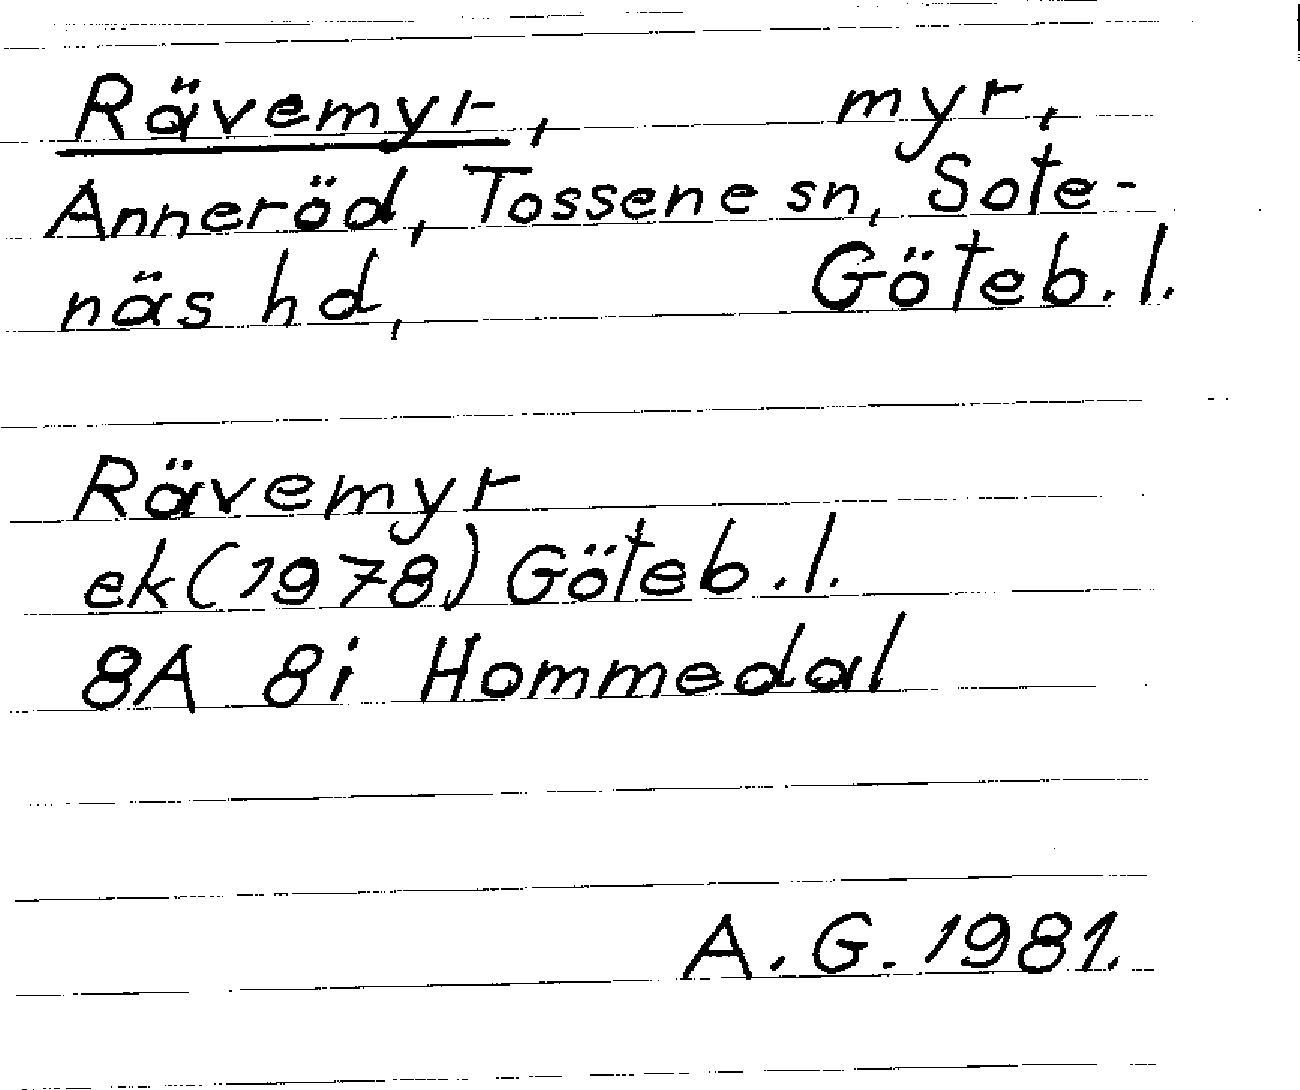 Rävemyr, myr,
Anneröd, Tossene sn, Sote-
näs hd, Göteb. l.
Rävemyr
ek (1978) Göteb. l.
8A 8i Hommedal
A. G. 1981.